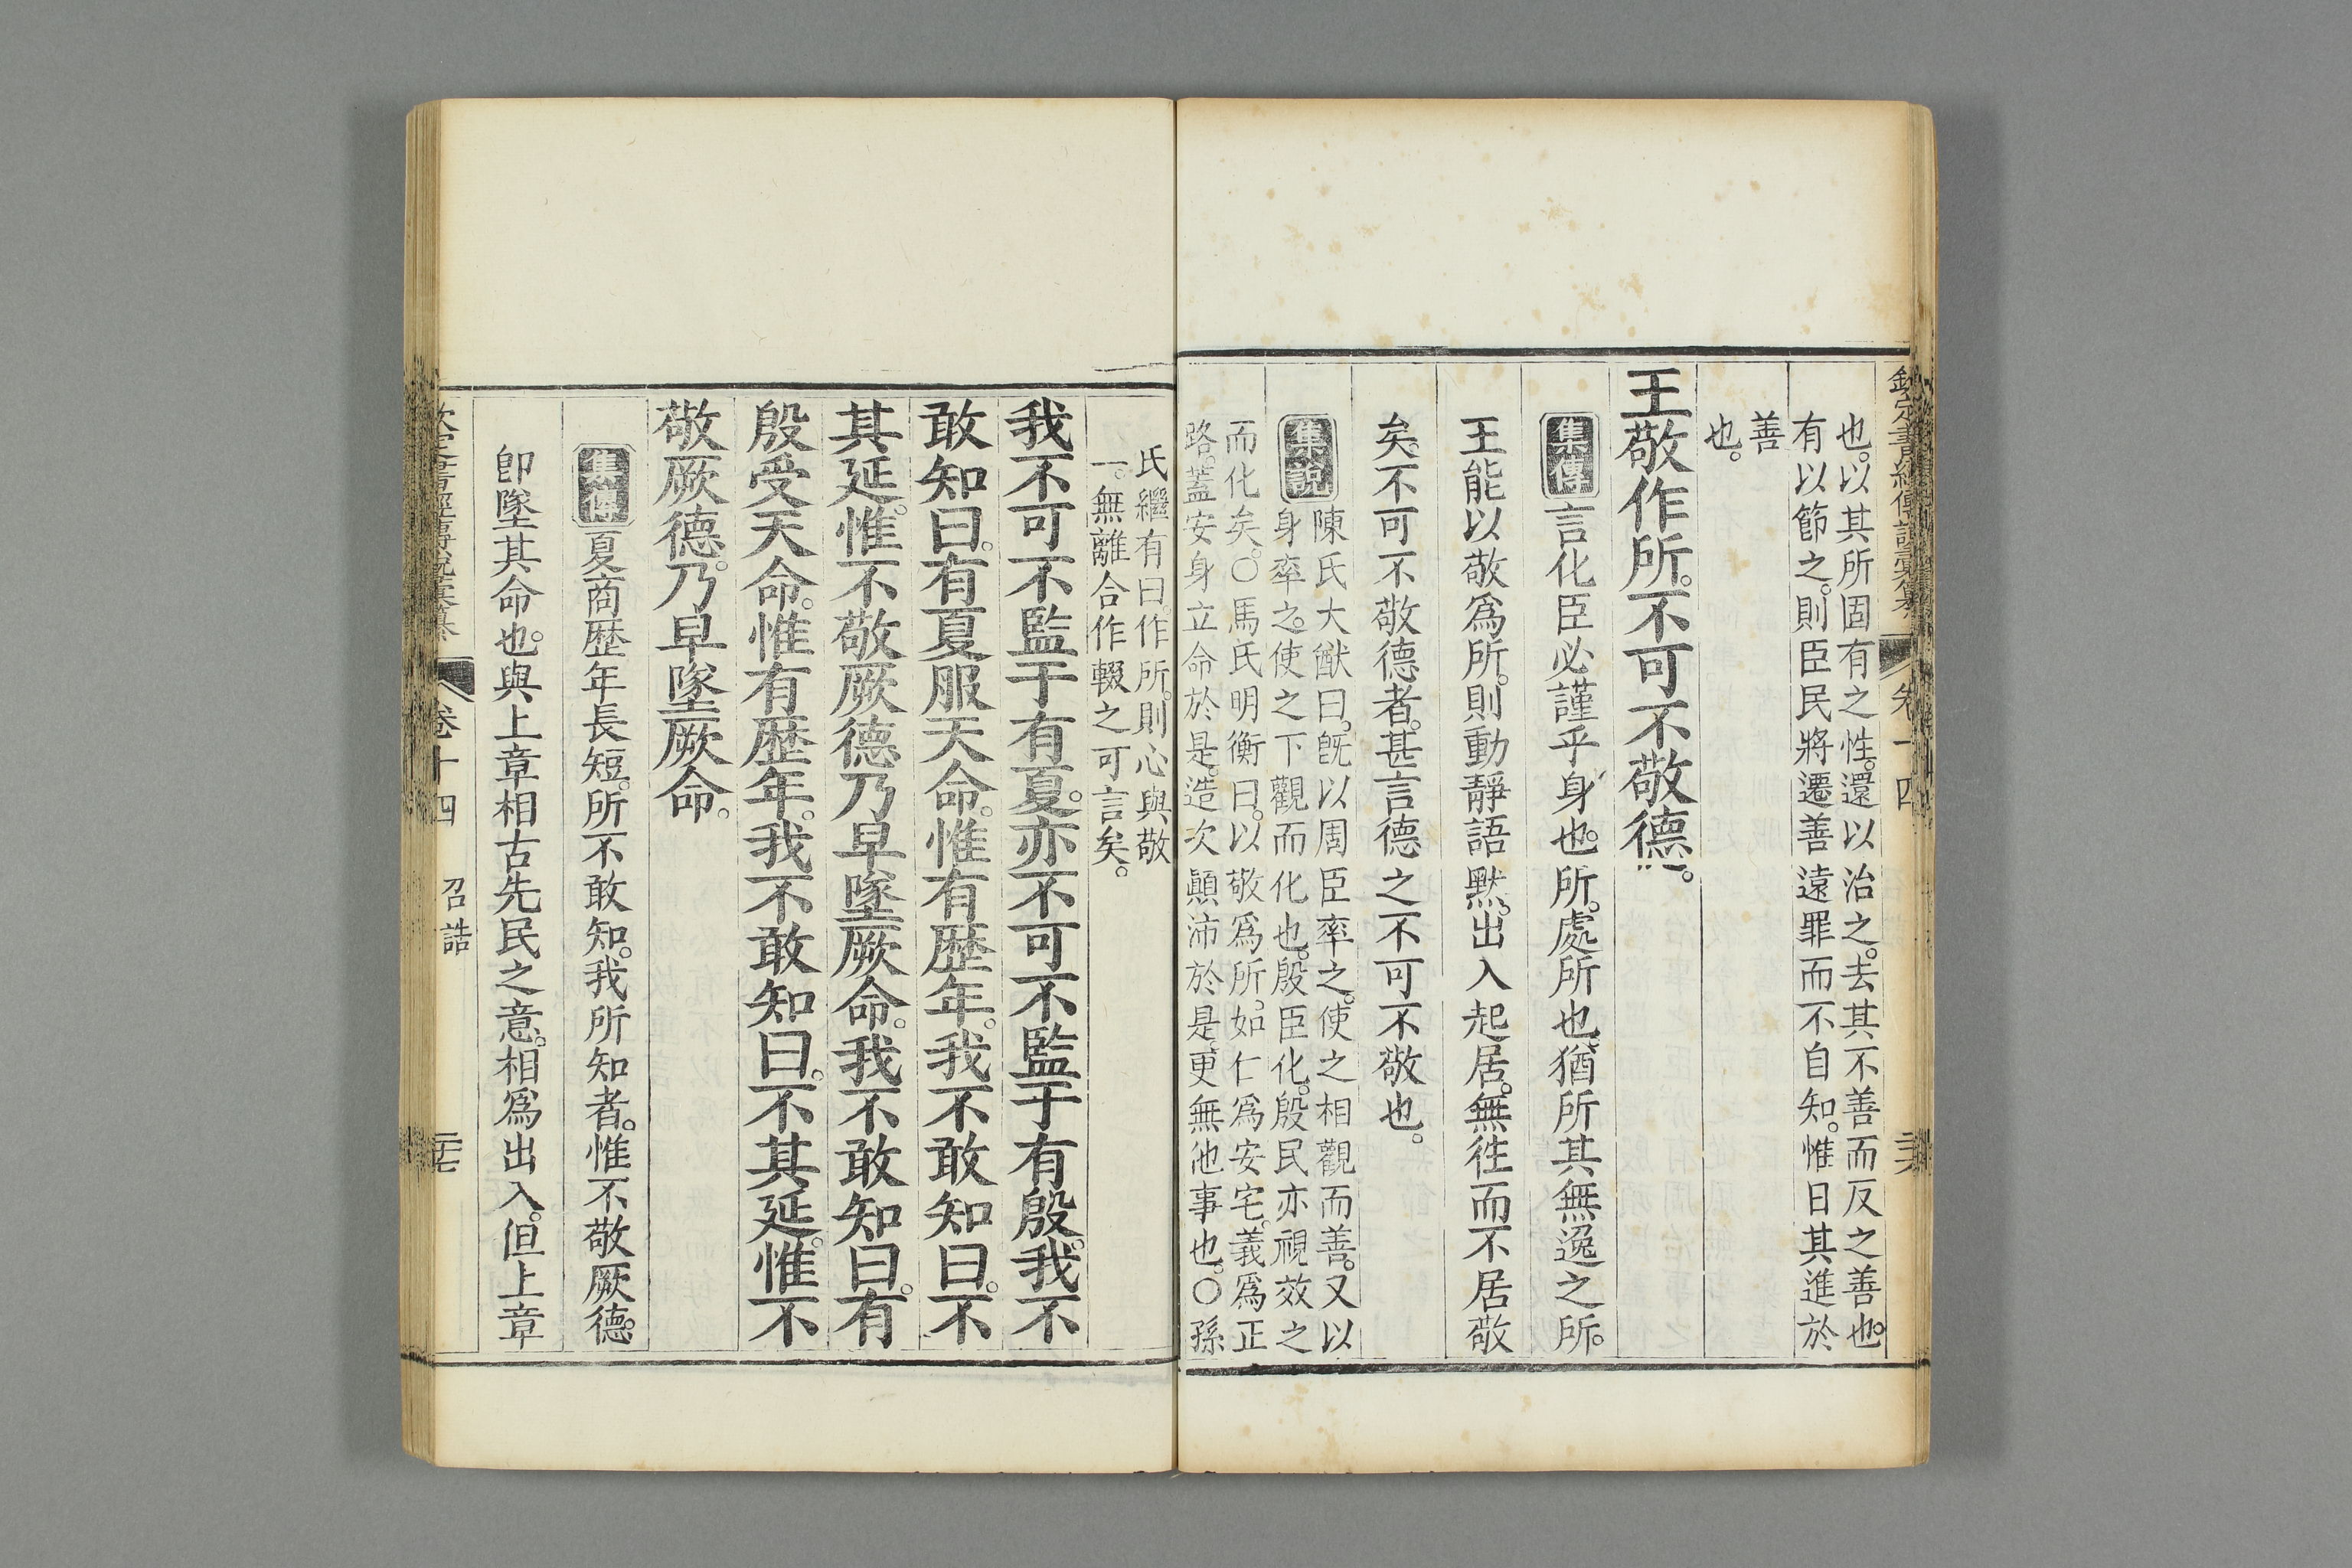 也。以其所固有之性。還以治之。去其不善而反之善也。
有以節之。則臣民將遷善遠罪而不自知。惟日其進於
善
也。
王敬作所。不可不敬德。
集傳 言化臣必謹乎身也。所。處所也。猶所其無逸之所。
王能以敬爲所。則動靜語默。出入起居。無徃而不居敬
矣。不可不敬德者。甚言德之不可不敬也。
集說
陳氏大猷曰。旣以周臣率之。使之相觀而善。又以
身率之。使之下觀而化也。殷臣化。殷民亦視效之
而化矣。○馬氏明衡曰。以敬爲所。如仁爲安宅。義爲正
路。蓋安身立命於是。造次顚沛於是。更無他事也。○孫
氏繼有曰。作所。則心與敬
一。無離合作輟之可言矣。
我不可不監于有夏。亦不可不監于有殷。我不
敢知曰。有夏服天命。惟有歷年。我不敢知曰。不
其延。惟不敬厥德。乃早墜厥命。我不敢知曰。有
殷受天命。惟有歷年。我不敢知曰。不其延。惟不
敬厥德。乃早墜厥命。
集傳 夏商歷年長短。所不敢知。我所知者。惟不敬厥德。
卽墜其命也。與上章相古先民之意。相爲出入。但上章
卷十四
召誥
二十七